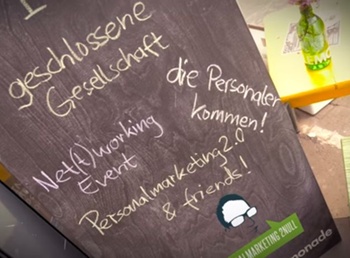 geschlossene
Gesellschaft
die Personaler
kommen!
Net(t)working
Event
Personalmarketing 2.0
& friends!
ALMARKETING 2NULL
onade